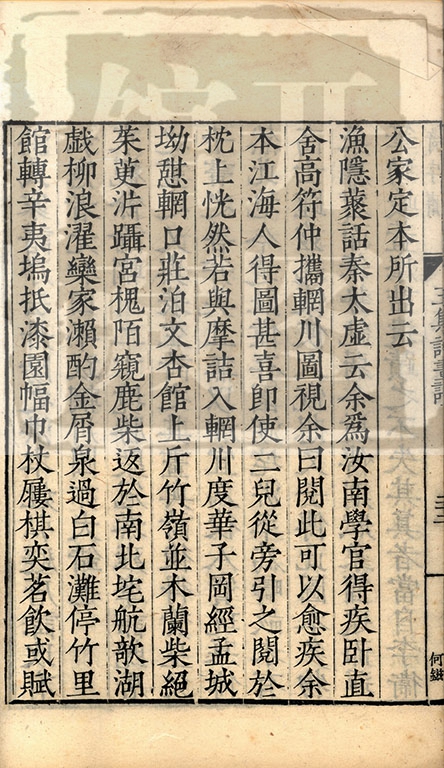 公家定本所出云
漁隱藂話秦太虛云余爲汝南學官得疾卧直
舍高符仲攜輞川圖視余曰閱此可以愈疾余
本江海人得圖甚喜即使二兒從旁引之閱於
枕上恍然若與摩詰入輞川度華子岡經孟城
坳憩輞口莊泊文杏館上斤竹嶺並木蘭柴絕
茱萸沜躡宮槐陌窺鹿柴返於南北垞航欹湖
戯柳浪濯欒家瀨酌金屑泉過白石灘停竹里
館轉辛夷塢抵漆園幅巾杖屨棋奕茗飲或賦